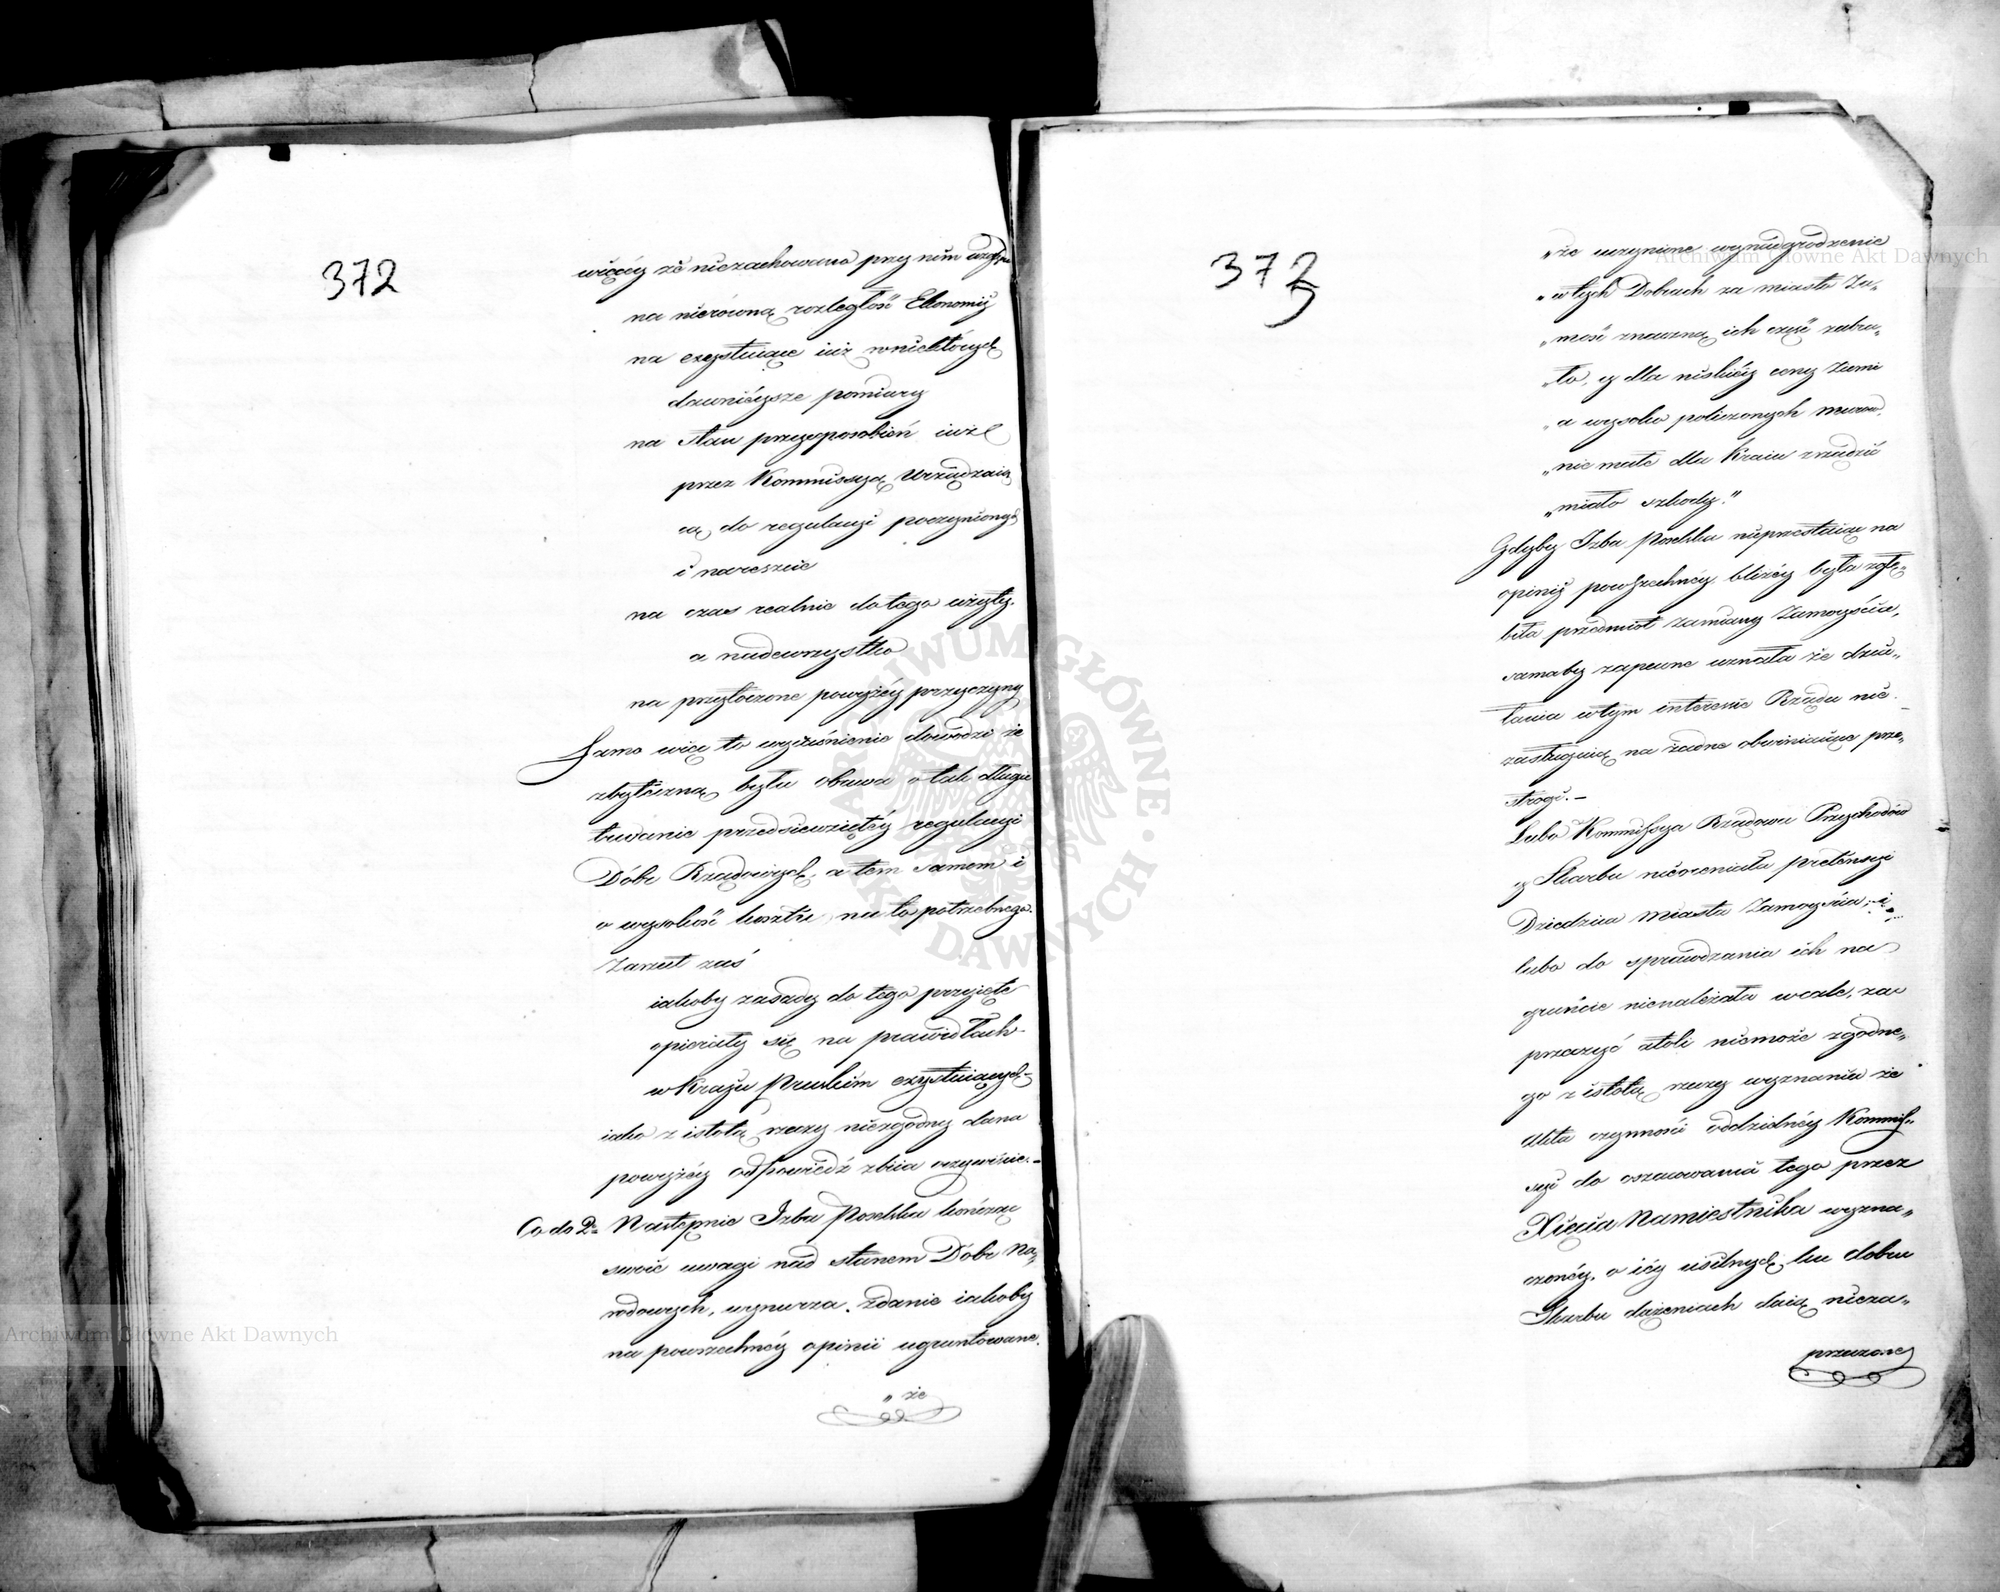 372
więcéy że niezachowano przy nim wzglę
na nierówną rozległość Ekonomiy
na exystuiące iuż w niektórych
dawniéysze pomiary
na stan przysposobień iuż
przez Kommissyą Urządzaią
cą do regulacyi poczynionych
i nareszcie
na czas realnie do tego użyty.
a nadewszystko
na przytoczone powyżéy przyczyny
Samo więc to wyiaśnienie dowodzi że
zbyteczną była obawa o tak długie
trwanie przedsięwziętéy regulacyi
Dóbr Rządowych, a tem samem i
o wysokość kosztu na to potrzebnego.
Zarzut zaś
iakoby zasady do tego przyięte
opierały się na prawidłach
w Kraju Pruskim exystuiących
iako z istotą rzeczy niezgodny dana
powyżéy odpowiedź zbiia oczywiście.
Co do 2o Następnie Izba Poselska kończąc
swoie uwagi nad stanem Dóbr Na„
rodowych, wynurza zdanie iakoby
na powszechnéy opinii ugruntowane.
„że
373
„że uczynione wynadgrodzenie
„w tych Dobrach za miasto Za„
„mość znaczną ich część zabra„
„ło, y dla niskiéy ceny Ziemi
„a wysoko policzonych murów,
„nie małe dla Kraiu zrządzić
„miało szkody."
Gdyby Izba Poselska nieprzestaiąc na
opinij powszechnéy bliżéy była zgłę„
biła przedmiot zamiany Zamościa,
samaby zapewne uznała że dzia„
łania w tym interesie Rządu nie
zasługuią na żadne obwiniaiące prze„
strogi.
Lubo Kommissya Rządowa Przychodów
y Skarbu nieoceniała pretensyi
Dziedzica Miasta Zamościa, i
lubo do sprawdzania ich na
gruncie nienależała wcale, za
przeczyć atoli niemoże zgodne„
go z istotą rzeczy wyznania że
Akta czynności oddzielnéy Kommis„
syi do oszacowania tego przez
Xięcia Namiestnika wyzna„
czonéy, o iéy usilnych ku dobru
Skarbu dążeniach daią nieza„
przeczone